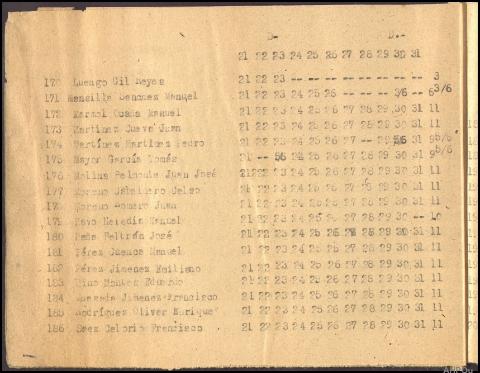 D- D.-
21 22 23 24 25 26 27 28 29 30 31
170 Luengo Gil Reyes 21 22 23 -- -- -- -- -- -- -- -- 3
171 Mansilla Sanchez Manuel 21 22 23 24 25 26 -- -- -- 3/6 -- 6 3/6
172 Marmol Ocaña Manuel 21 22 23 24 25 26 27 28 29 30 31 11
173 Martinez Cueva Juan 21 22 23 24 25 26 27 28 29 30 31 11
174 Martínez Martinez Pedro 21 22 23 24 25 26 27 -- 29 5/6 31 9 5/6
175 Mayor García Tomás 21 -- 5/6 24 25 26 27 28 29 30 31 9 5/6
176 Molina Juan José 21 22 23 24 25 26 27 28 29 30 31 11
177 Moreno Caballero 21 22 23 24 25 26 27 28 29 30 31 11
178 Moreno Romero Juan 21 22 23 24 25 26 27 28 29 30 31 11
179 Heredia Manuel 21 22 23 24 25 26 27 28 29 30 -- 10
180 Peña Beltrán José 21 22 23 24 25 26 27 28 29 30 31 11
181 Pérez Cuenca Manuel 21 22 23 24 25 26 27 28 29 30 31 11
182 Pérez Jimenez Emiliano 21 22 23 24 25 26 27 28 29 30 31 11
183 Montes Eduardo 21 22 23 24 25 26 27 28 29 30 31 11
184 Quesada Jimenez Francisco 21 22 23 24 25 26 27 28 29 30 31 11
185 Rodríguez Oliver Enrique 21 22 23 24 25 26 27 28 29 30 31 11
186 Saez Celorio Francisco 21 22 23 24 25 26 27 28 29 30 31 11